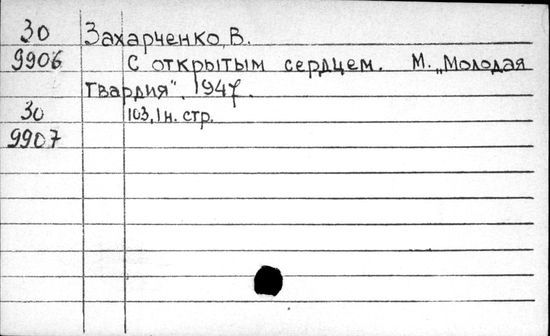 30 Захарченко, В.
9906 С открытым сердцем. М. „Молодая
гвардия". 1947.
30 103, 1 н. стр.
9907